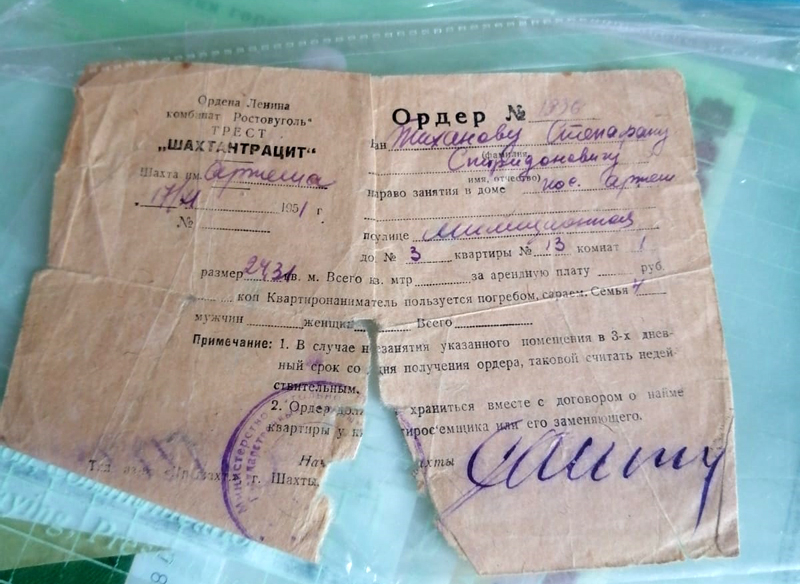 Ордена Ленина
комбинат Ростовуголь"
ТРЕСТ
„ШАХТАНТРАЦИТ"
Шахта им. Артема
17/ 1951 г.
№
Ордер №
Спиридоновичу
(фамилия,
имя, отчество)
право занятия в доме пос. Артем
по улице Милиционная
до № 3 квартиры № 13 комнат 1
размер кв. м. Всего кв. мтр за арендную плату руб
коп Квартиронаниматель пользуется погребом, сараем. Семья 4
мужчин женщин Всего
Примечание: 1. В случае незанятия указанного помещения в 3-х днев-
ный срок со дня получения ордера, таковой считать недей-
ствительным.
2. Ордер дол храниться вместе с договором о найме
квартиры у к тиросъемщика или его заменяющего.
Нач ахты
г. Шахты,
Министерство